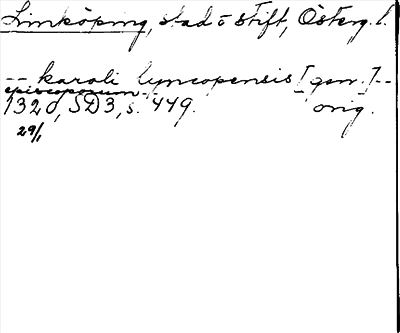 Linköping, stad o stift, Österg. l.
-- karoli lyncopensis [gen.] --
episcoporum
1320, SD3, s. 449. orig.
29/1